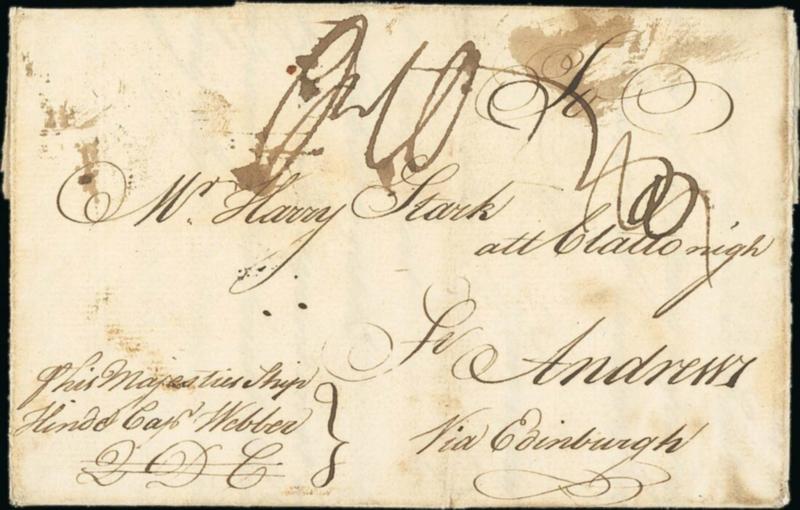 To
Mr. Harry Stark
att Clatto nigh
St Andrews
Via Edinburgh
P his Majesties Ship
Hinde Cap Webber
Q D C